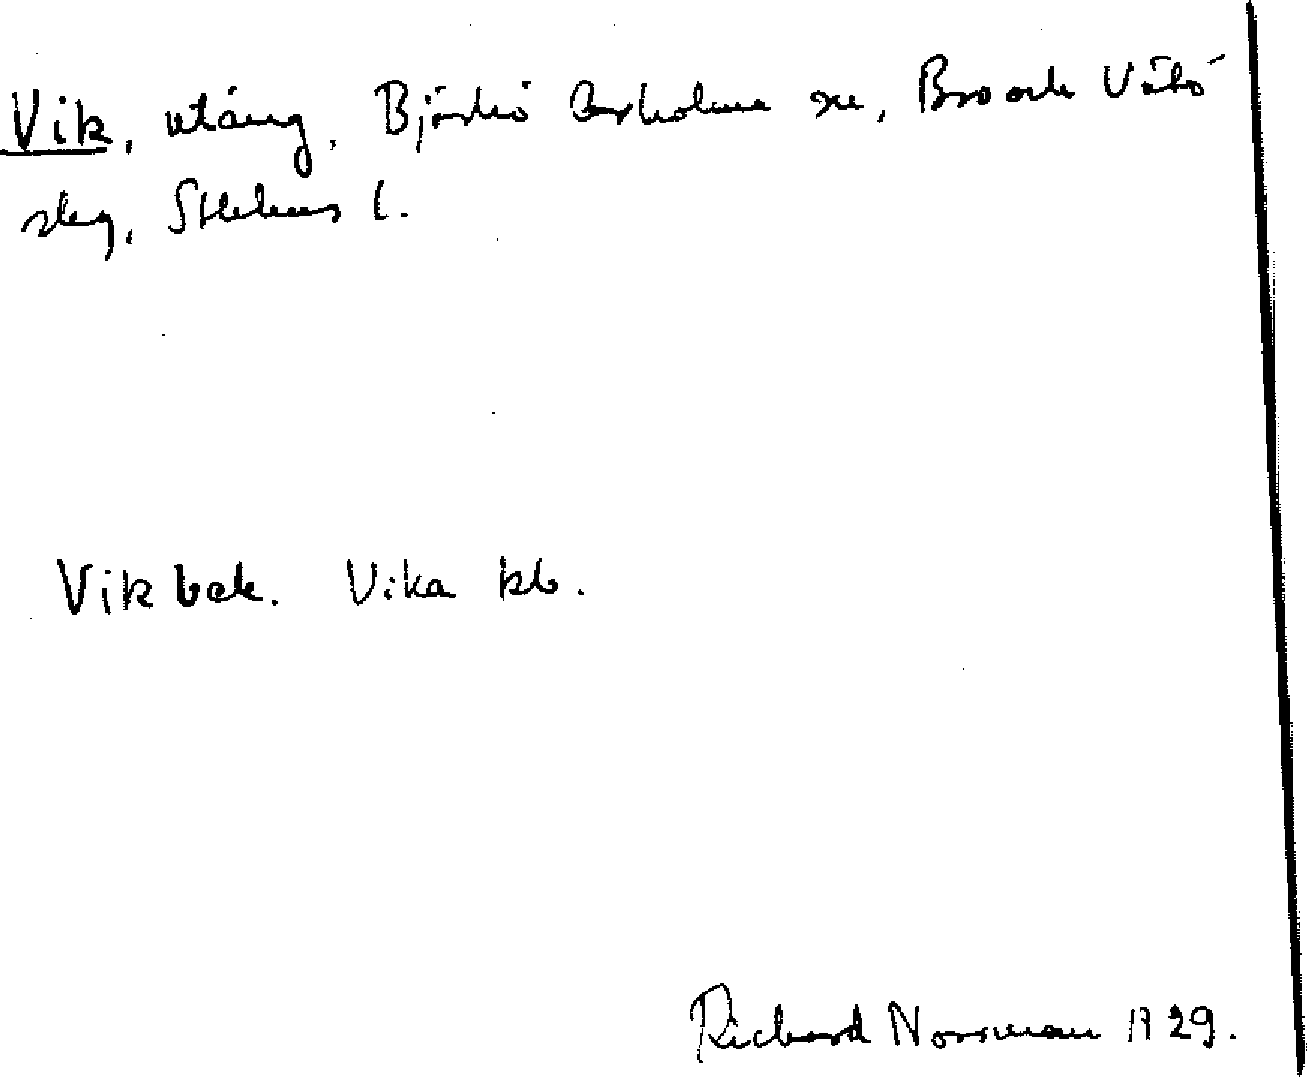 Vik, utäng, Björkö Arholma sn, Bro och Vätö
skg, Sthlms l.
Vik bek. Vika kb.
Richard Norrman 1929.